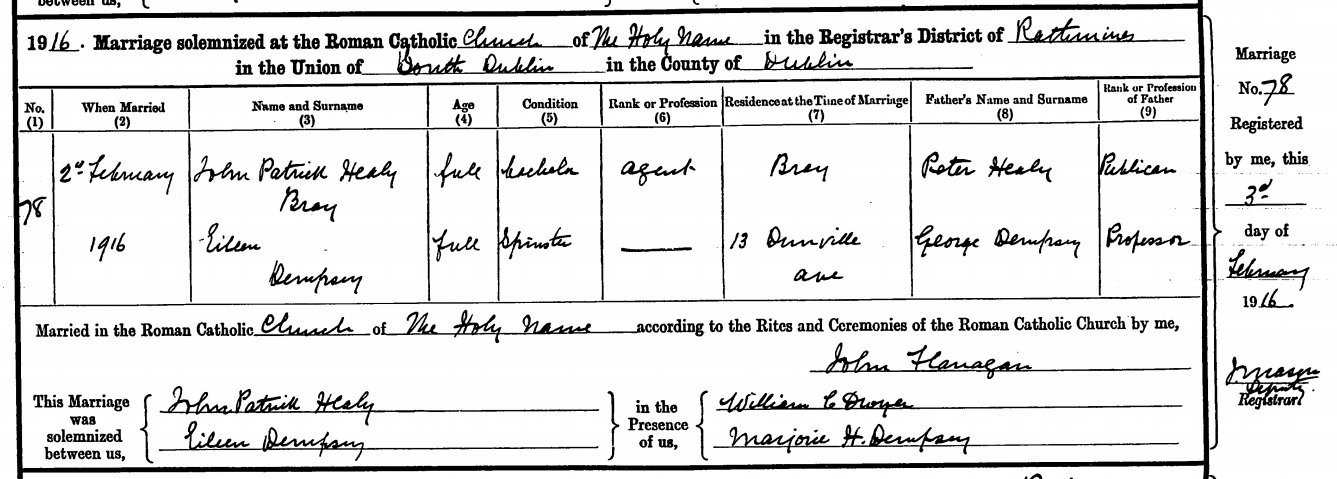 between us,
1916. Marriage solemnized at the Roman Catholic Church of The Holy Name in the Registrar's District of Rathmines
in the Union of South Dublin in the County of Dublin
No. (1) When Married (2) Name and Surname (3) Age (4) Condition (5) Rank or Profession (6) Residence at the Time of Marriage (7) Father's Name and Surname (8) Rank or Profession of Father (9)
78 2d February John Patrick Healy full bachelor agent Bray Peter Healy Publican
Bray
1916 Eileen full Spinster 13 Dunville George Dempsey Professor
Dempsey ave
Married in the Roman Catholic Church of The Holy Name according to the Rites and Ceremonies of the Roman Catholic Church by me,
John Flanagan
This Marriage was solemnized between us,
John Patrick Healy
Eileen Dempsey
in the Presence of us,
William C Dwyer
Marjorie H. Dempsey
Marriage
No. 78
Registered
by me, this
3d
day of
February
1916
Deputy
Registrar